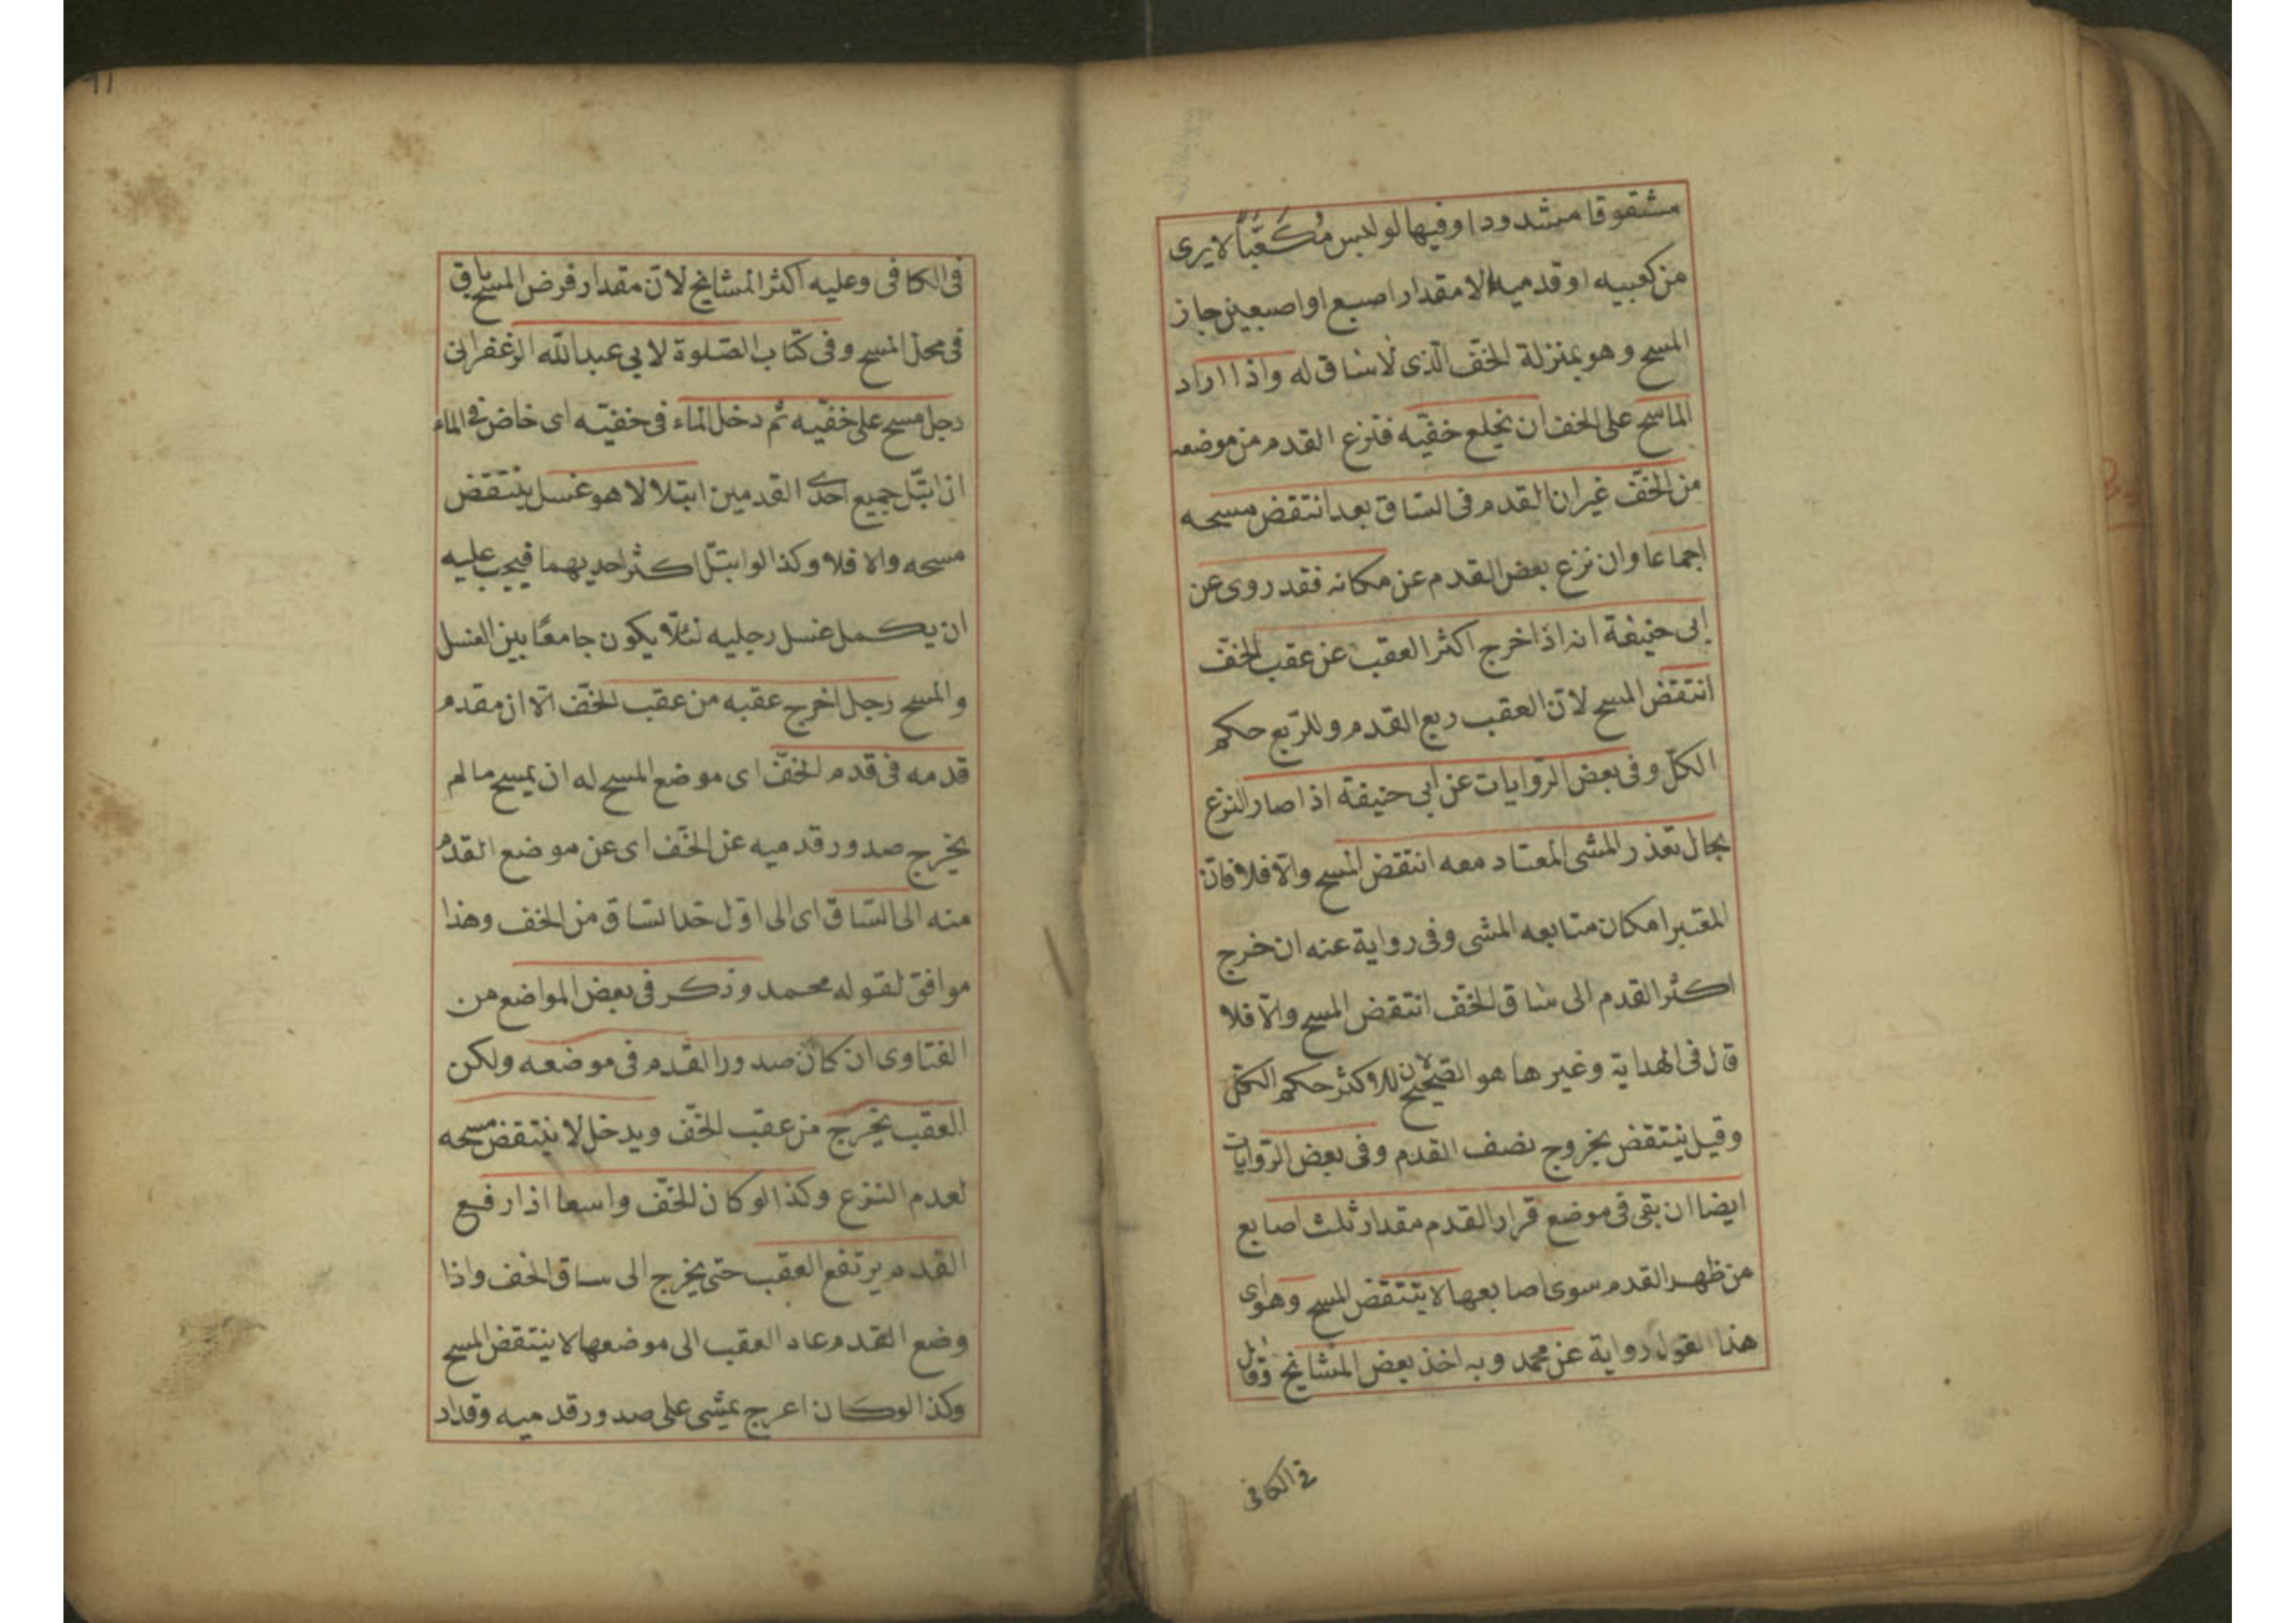 مشقوقا مشدودا وفيها لو لبس مُكَعَّبًا لا يرى
من كعبيه او قدميه الا مقدار اصبع او اصبعين جاز
المسح وهو بمنزلة الخفّ الّذى لا ساق له واذا اراد
الماسح على الخف ان يخلع خفّيه فنزع القدم من موضعه
من الخفّ غير ان القدم فى الساق بعد انتقض مسحه
اجماعا وان نزع بعض القدم عن مكانه فقد روى عن
ابى حنيفة انه اذا خرج اكثر العقب عن عقب الخفّ
انتقض المسح لانّ العقب ربع القدم وللرّبع حكم
الكلّ وفى بعض الرّوايات عن ابى حنيفة اذا صار النزع
بحال تعذر المشى المعتاد معه انتقض المسح والّا فلا فانّ
المعتبر امكان متابعه المشى وفى رواية عنه ان خرج
اكثر القدم الى ساق الخفّ انتقض المسح والّا فلا
قال فى الهداية وغيرها هو الصّحيح لان للاكثر حكم الكلّ
وقيل ينتقض بخروج نصف القدم وفى بعض الرّوايات
ايضا ان بقى فى موضع قرار القدم مقدار ثلث اصابع
من ظهر القدم سوى اصابعها لا ينتقض المسح وهو اى
هذا القول رواية عن محمد وبه اخذ بعض المشايخ وقال
فى الكافى
فى الكافى وعليه اكثر المشايخ لانّ مقدار فرض المسح باق
فى محلّ المسح وفى كتاب الصّلوة لابى عبد اللّه الزعفرانى
رجل مسح على خفّيه ثم دخل الماء فى خفيّه اى خاض فى الماء
ان ابتلّ جميع احدى القدمين ابتلالا هو غسل ينتقض
مسحه والا فلا وكذا لو ابتلّ اكثر احديهما فيجب عليه
ان يكمل غسل رجليه لئلّا يكون جامعًا بين الغسل
والمسح رجل اخرج عقبه من عقب الخفّ الّا ان مقدم
قدمه فى قدم الخفّ اى موضع المسح له ان يمسح ما لم
يخرج صدور قدميه عن الخفّ اى عن موضع القدم
منه الى السّاق اى الى اوّل حدّ السّاق من الخف وهذا
موافق لقوله محمد وذكر فى بعض المواضع من
الفتاوى ان كان صدور القدم فى موضعه ولكن
العقب يخرج من عقب الخفّ ويدخل لا ينتقض مسحه
لعدم النزع وكذا لو كان الخفّ واسعا اذا رفع
القدم يرتفع العقب حتى يخرج الى ساق الخف واذا
وضع القدم عاد العقب الى موضعها لا ينتقض المسح
وكذا لو كان اعرج يمشى على صدور قدميه وقد ار